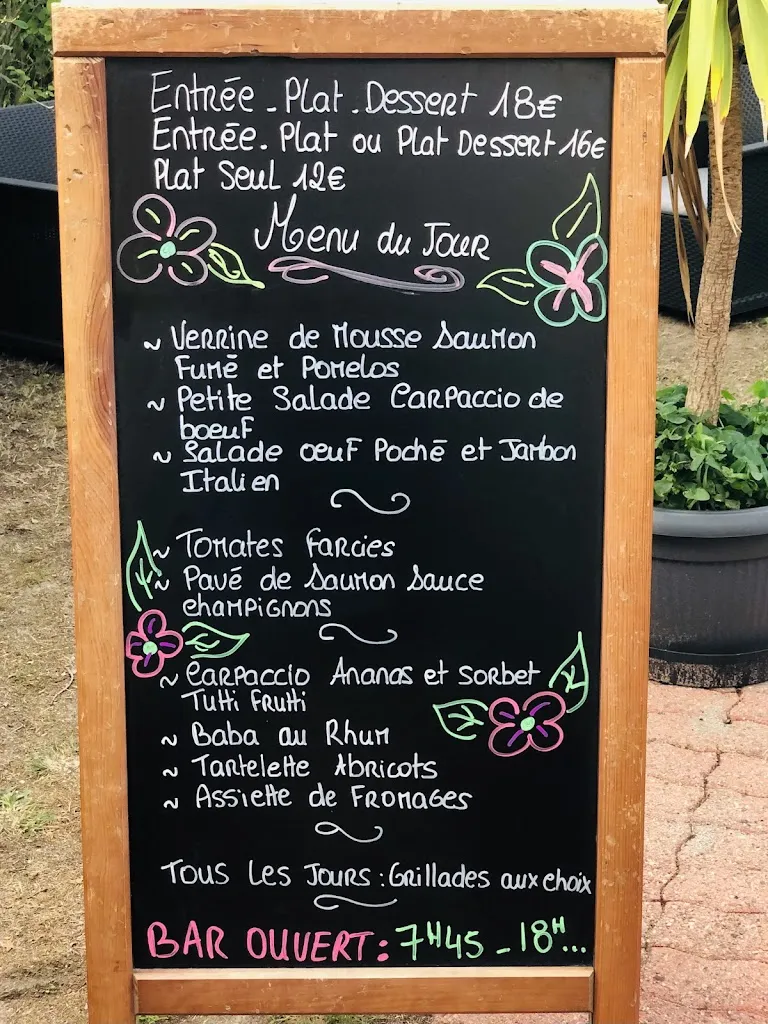 Entrée - Plat - Dessert 18€
Entrée - Plat ou Plat Dessert 16€
Plat Seul 12€
Menu du Jour
~ Verrine de Mousse Saumon
Fumé et Pomelos
~ Petite Salade Carpaccio de
boeuf
~ Salade oeuf Poché et Jambon
Italien
~ Tomates farcies
~ Pavé de Saumon Sauce
champignons
~ Carpaccio Ananas et sorbet
Tutti Frutti
~ Baba au Rhum
~ Tartelette Abricots
~ Assiette de Fromages
Tous Les Jours : Grillades aux choix
BAR OUVERT : 7H45 - 18H...